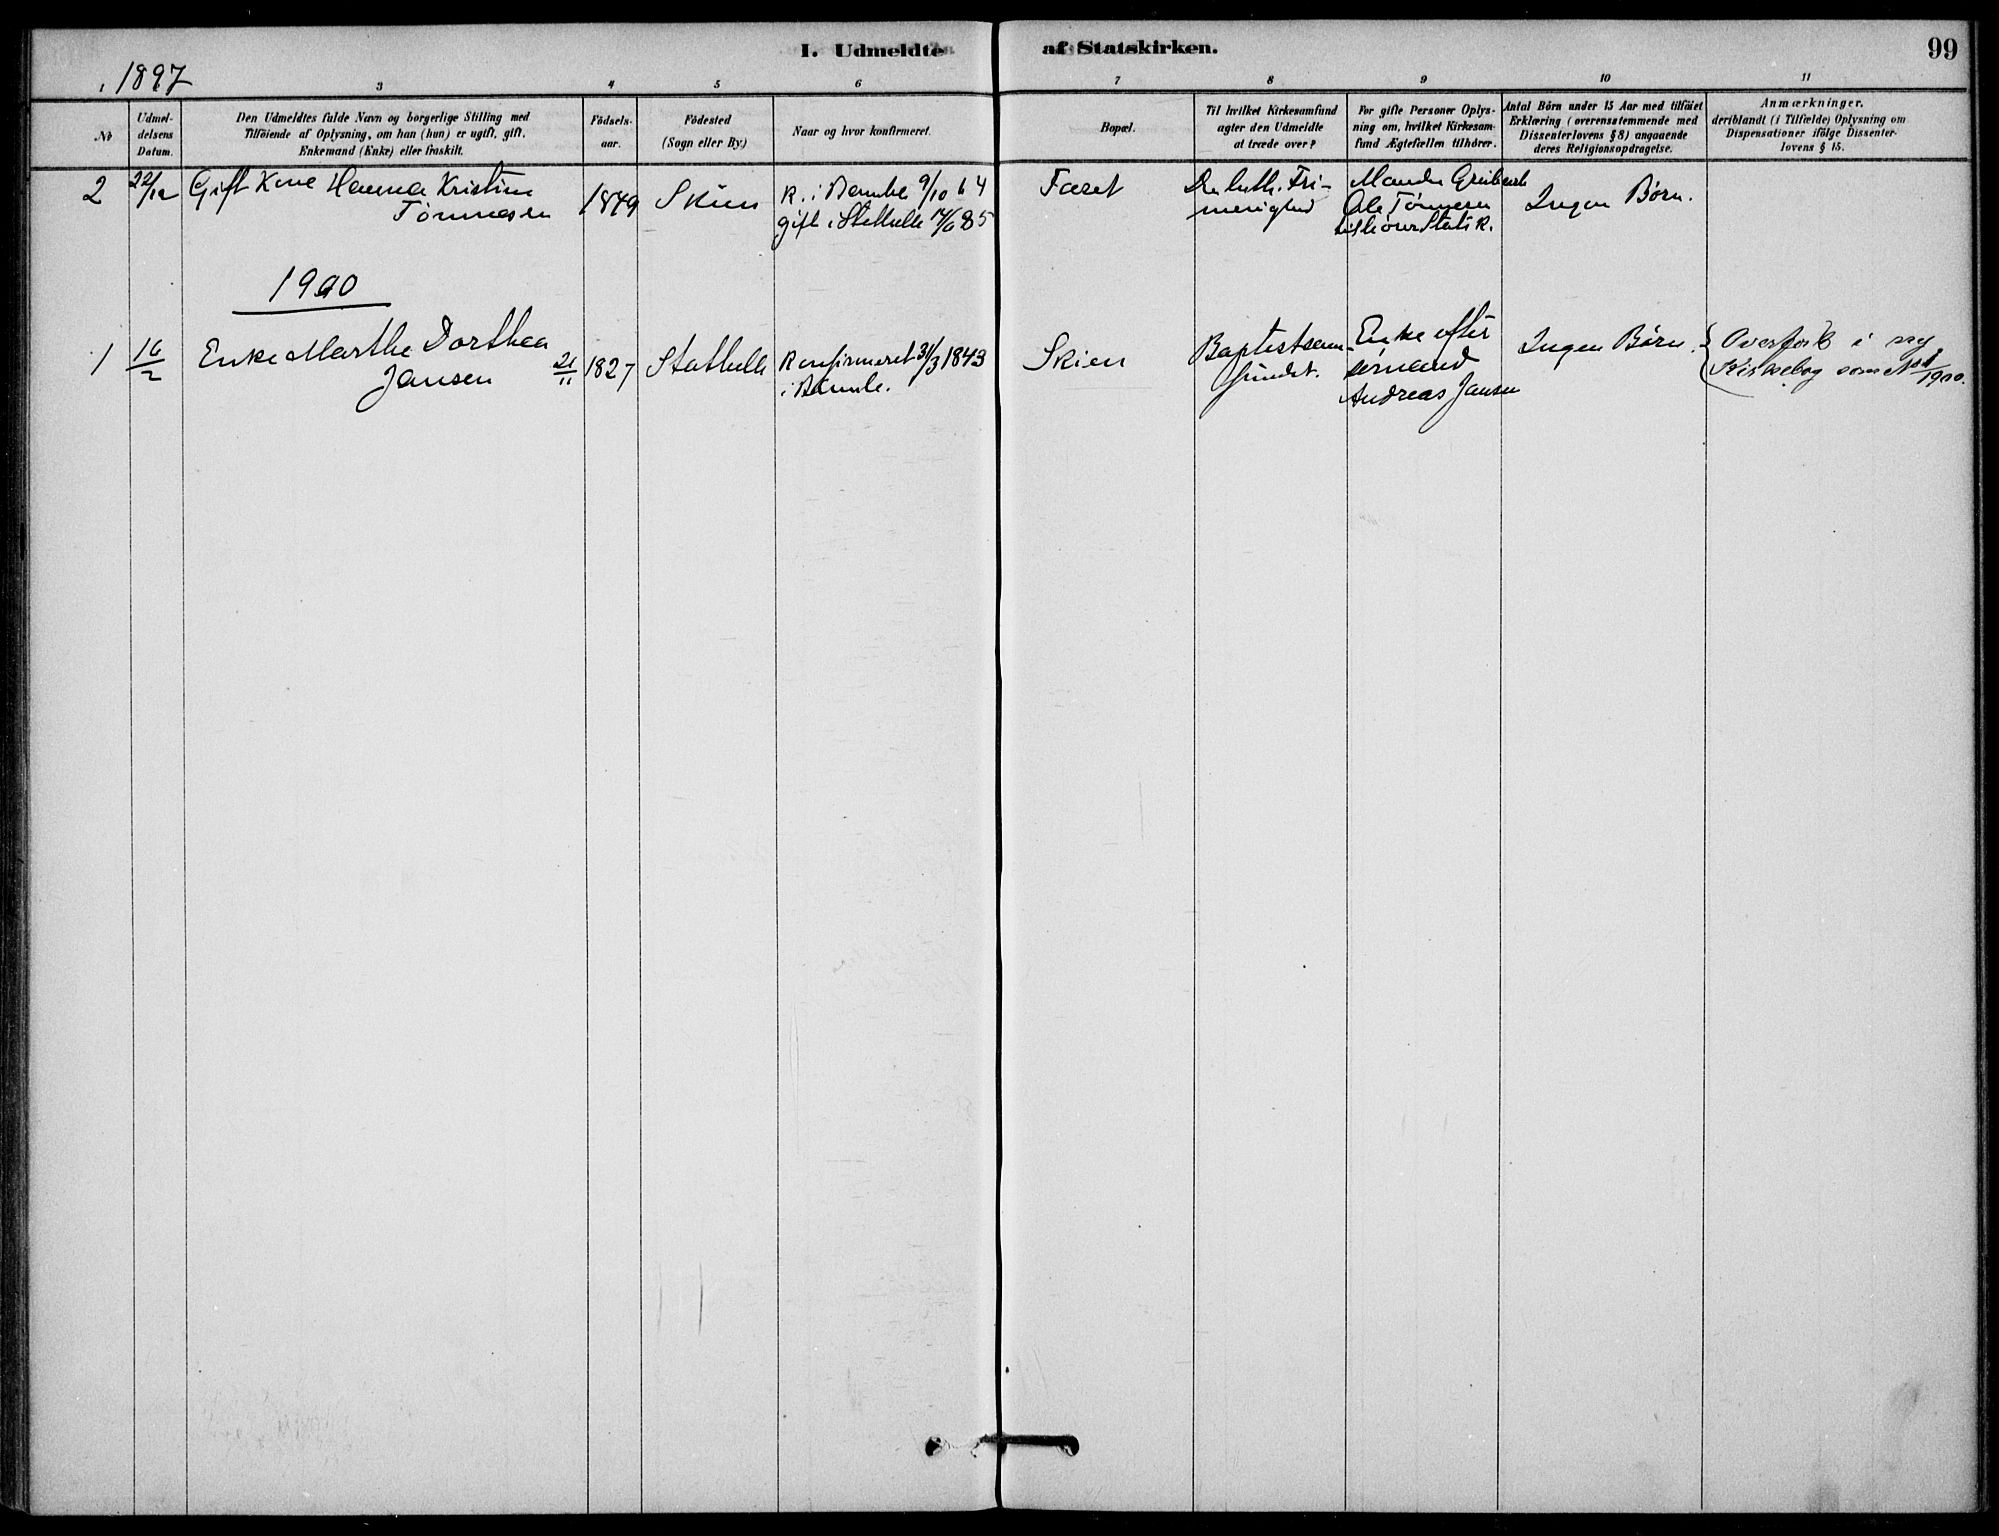 I. Udmeldte af Statskirken.
99
1897
3
4
5
6
7
8
9
10
11
No
Udmel-
delsens
Datum.
Den Udmeldtes fulde Navn og borgerlige Stilling med
Tilföiende af Oplysning, om han (hun) er ugift, gift,
Enkemand (Enke) eller fraskilt.
Födsels-
aar.
Födested
(Sogn eller By.)
Naar og hvor konfirmeret.
Bopæl.
Til hvilket Kirkesamfund
agter den Udmeldte
at træde over?
For gifte Personer Oplys-
ning om, hvilket Kirkesam-
fund Ægtefællen tilhörer.
Antal Börn under 15 Aar med tilföiet
Erklæring (overensstemmende med
Dissenterlovens § 8) angaaende
deres Religionsopdragelse.
Anmærkninger.
deriblandt (i Tilfælde) Oplysning om
Dispensationer ifölge Dissenter-
lovens § 15.
2
22/12
Gift Kone Hanna Kristine
Tönnesen
1849
Skien
K. i Bamble 9/10 64
gift i Stathelle /6 85
Faret
luth. Fri-
menighed
Manden
Ole Tönnesen
tilhører Stats K.
Ingen Børn.
1900
1
16/2
Enke Marthe Dorthea
Jansen
21/11 1827
Stathelle
Konfirmeret 31/3 1843
i Bamble.
Skien
Baptistsam-
fundet.
Enke efter
sömand
Andreas Jansen
Ingen Børn.
Overfört i ny
Kirkebog som No 1/1900.